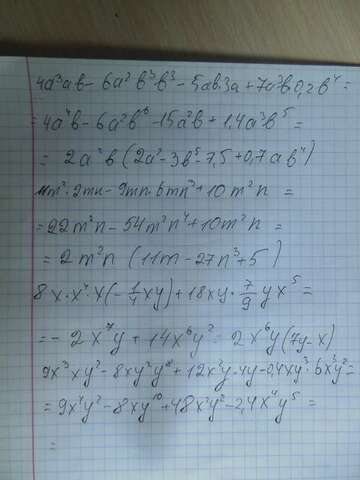 4a³ab - 6a²b³b³ - 5ab·3a + 7a³b·0,2b⁴ =
= 4a⁴b - 6a²b⁶ - 15a²b + 1,4a³b⁵ =
= 2a²b (2a² - 3b⁵ - 7,5 + 0,7ab⁴)
11m²·2mn - 9mn·6mn³ + 10m²n =
= 22m³n - 54m²n⁴ + 10m²n =
= 2m²n (11m - 27n³ + 5)
8x·x⁴·x(-1/4xy) + 18xy·7/9yx⁵ =
= -2x⁷y + 14x⁶y² = 2x⁶y(7y - x)
9x³xy² - 8xy²y⁸ + 12x²y·4y - 0,4xy³·6x³y² =
= 9x⁴y² - 8xy¹⁰ + 48x²y² - 2,4x⁴y⁵ =
=